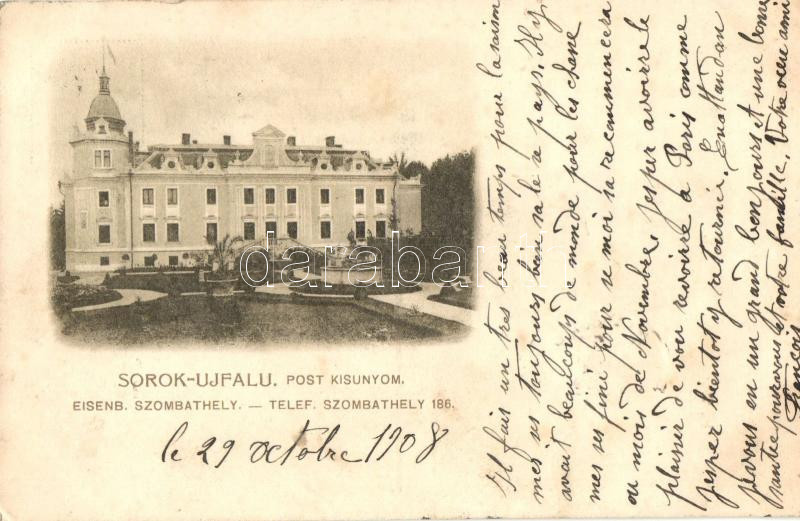 SOROK-UJFALU. POST KISUNYOM.
EISENB. SZOMBATHELY. — TELEF. SZOMBATHELY 186.
le 29 octobre 1908
Il fais un tres beau temps pour la saison
mes is toujours ban va le se pays. Il y
avait beaucoups de monde pour les chane
mes ses fini pour se moi sa recommencera
au mois de Novembre, jesper avoire le
plaisir de vou revoire a Paris comme
jesper bientot y retournir. En attandan
je vous en un grand bonjours et une bonne
pour vous et votre famille. Votre vieu ami
François
darabanth.com